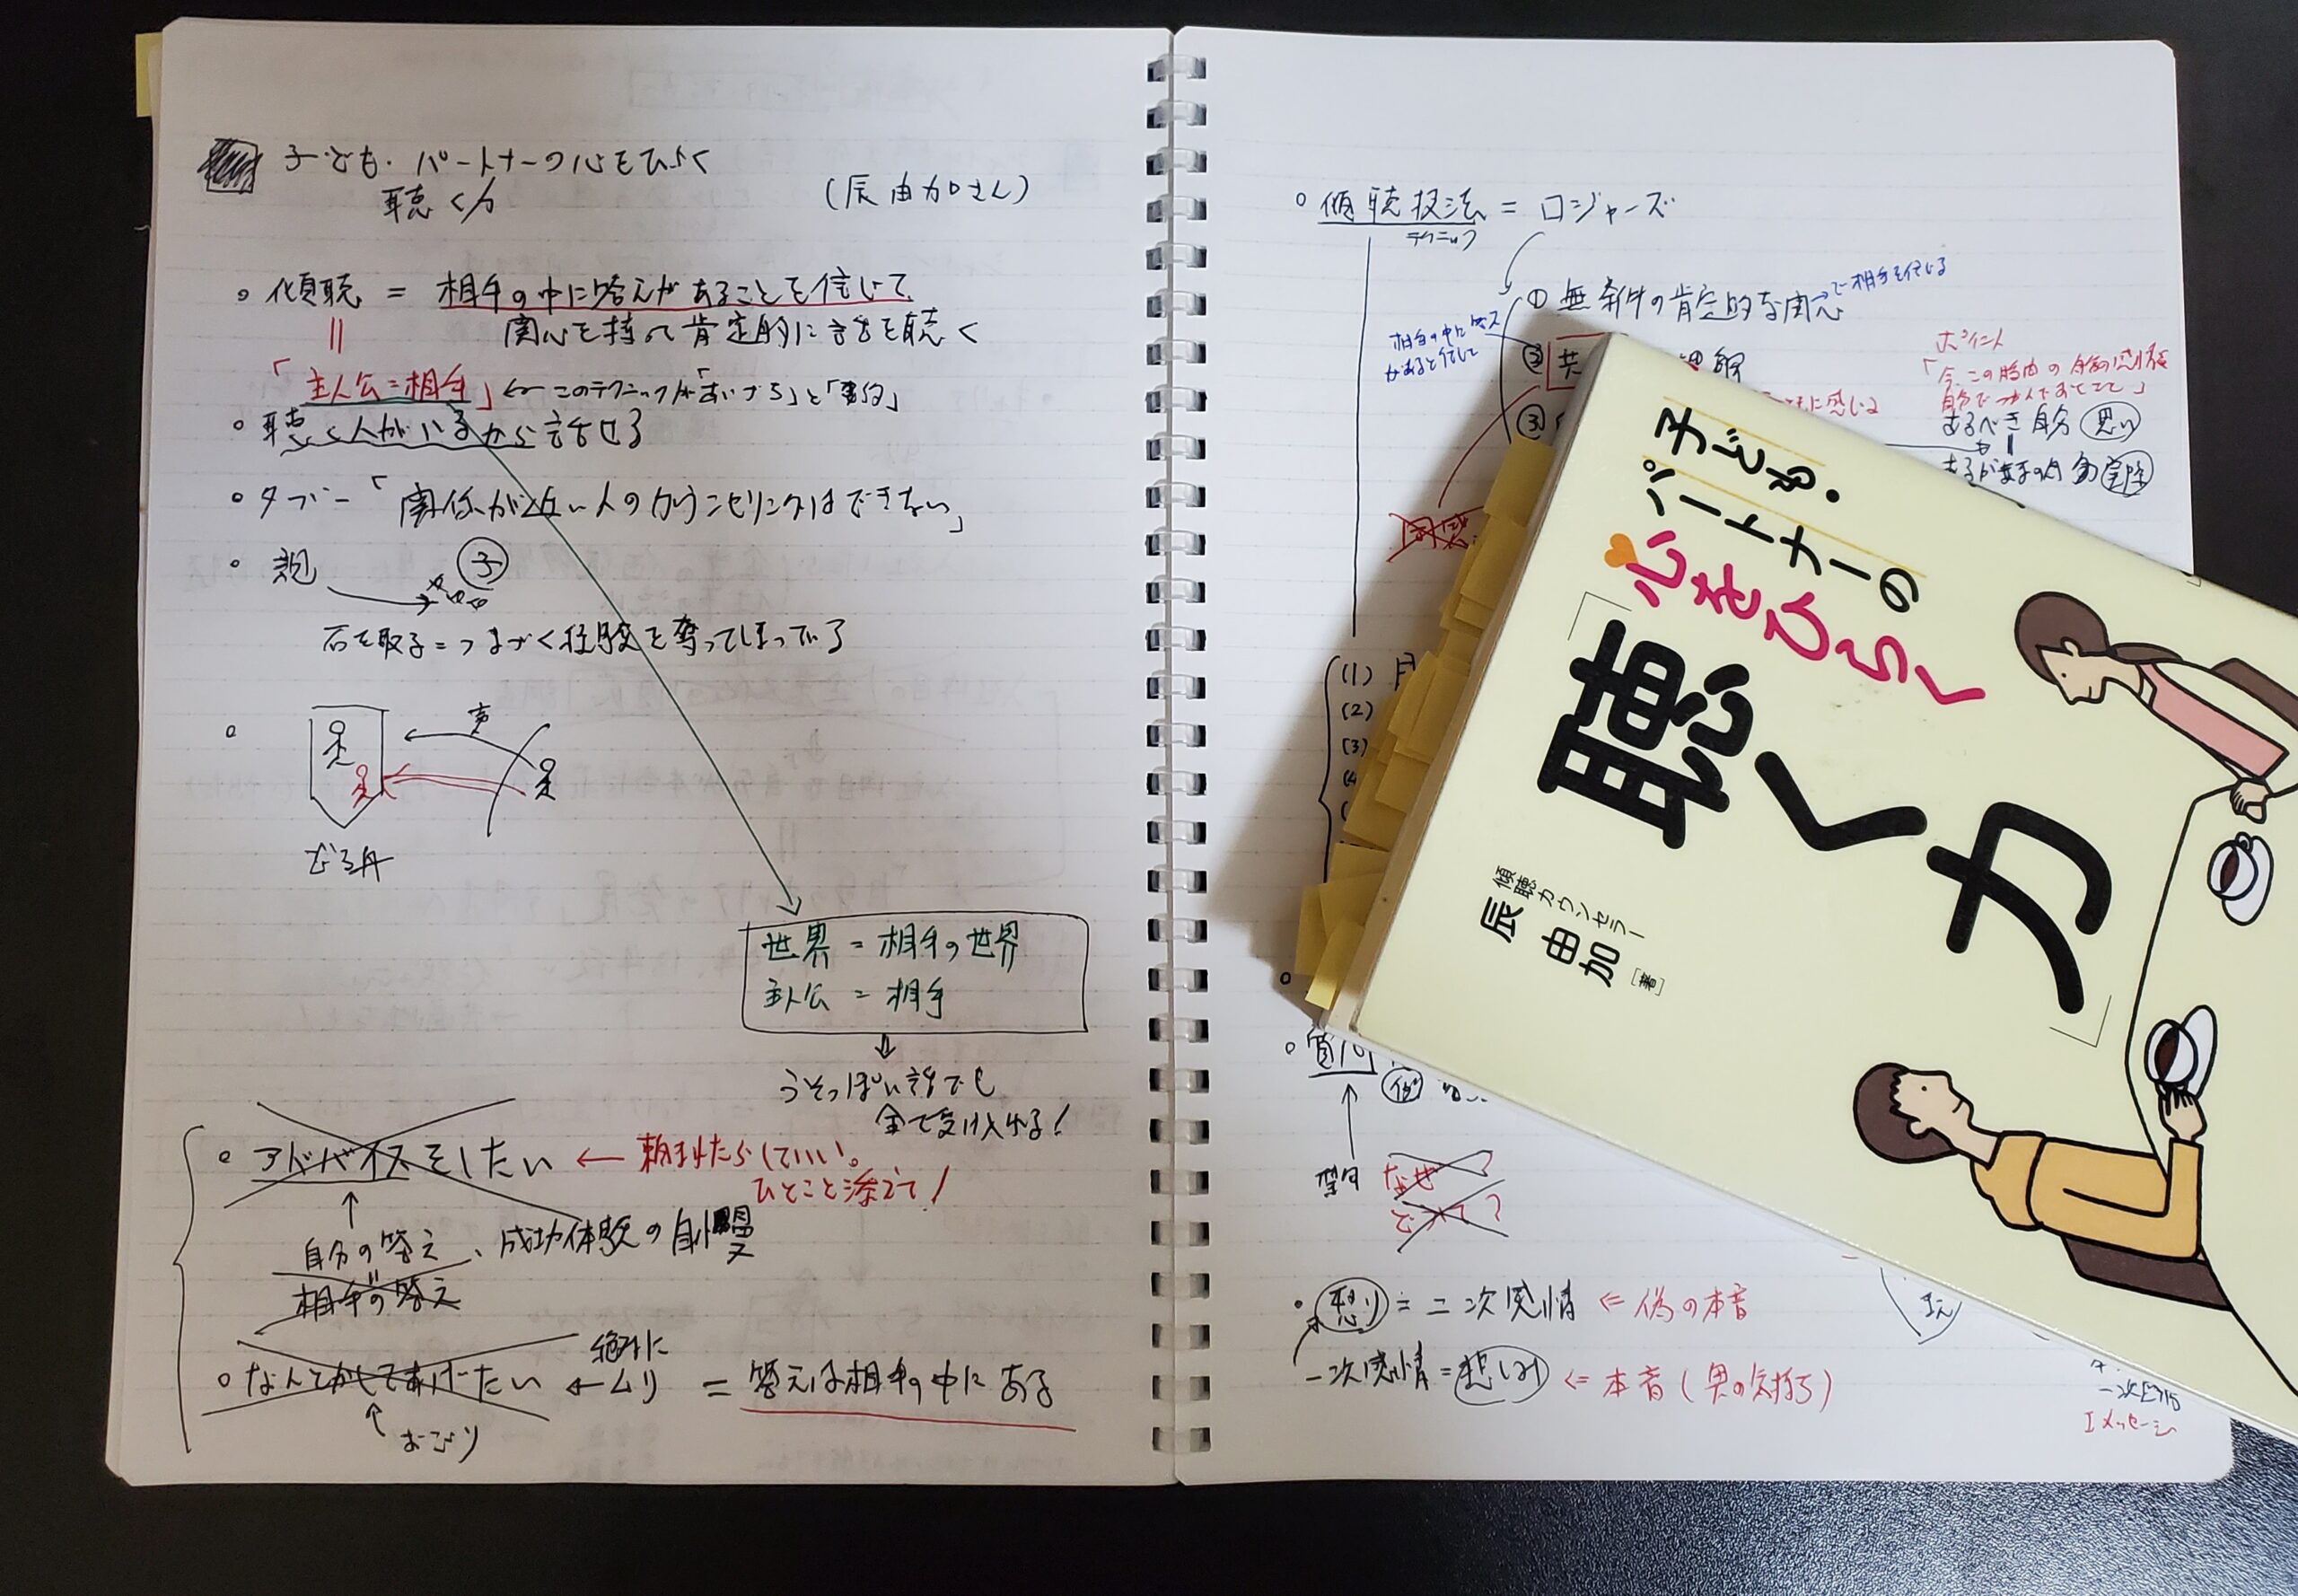 子ども・パートナーの心をひらく
聴く力
(辰由加さん)
傾聴 = 相手の中に答えがあることを信じて
関心を持って肯定的に話を聴く
「主人公=相手」← このテクニックが「あいづち」と「要約」
聴く人がいるから話せる
タブー「関係が近い人のカウンセリングはできない」
親
子
石を取る=つまづく体験を奪ってしまっている
声
どろ舟
世界 = 相手の世界
主人公 = 相手
うそっぽい話でも
全て受け入れる!
アドバイスをしたい ← 頼まれたらしていい。
ひとこと添えて!
自分の答え、成功体験の自慢
相手の答え
なんとかしてあげたい ← 絶対にムリ = 答えは相手の中にある
おごり
傾聴技法 = ロジャーズ
テクニック
① 無条件の肯定的な関心 → で相手を信じる
相手の中に答え
があると信じて
② 共 理解
ともに感じる
ポイント
「今、この瞬間の
自分でつかんでおくこと」
あるべき自分 思い
③
(1)
(2)
(3)
質問
なぜ?
どうして?
怒り = 二次感情 ⇐ 偽の本音
一次感情 = 悲しみ ⇐ 本音(真の気持ち)
Iメッセージ
子ども・
パートナーの
心をひらく
「聴く力」
傾聴カウンセラー
辰 由加[著]